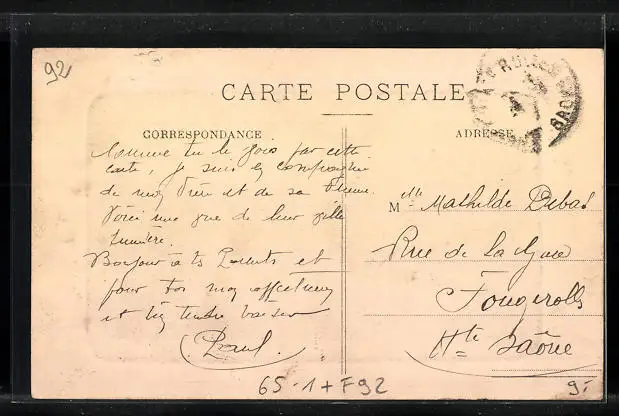 92
CARTE POSTALE
CORRESPONDANCE
ADRESSE
Comme tu le vois par cette
carte, je suis en compagnie
de mon et de sa
Voici une vue de leur
lumière.
Bonjour à ts Parents et
pour toi mon affectueux
et bien tendre baiser
Paul
Mlle Mathilde Debas
Rue de la Gare
Fougerolles
Hte Saône
65-1+F92
9.-